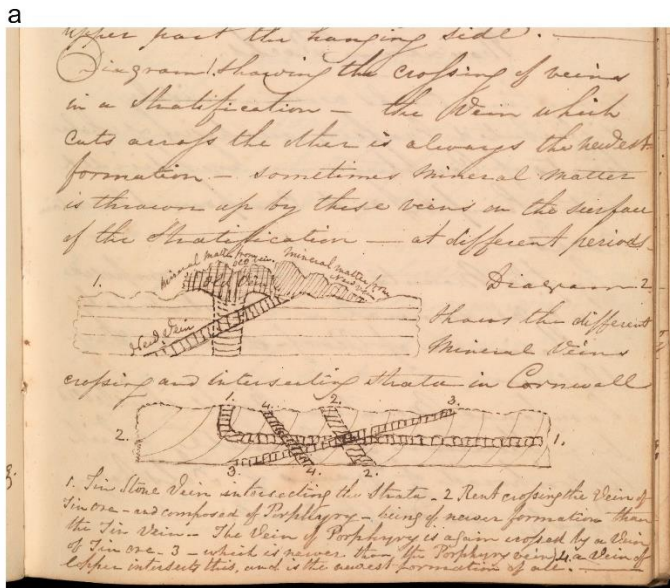 a
upper part the hanging side. —
Diagram 1. showing the crossing of veins
in a Stratification — the Vein which
cuts across the other is always the newest
formation — sometimes mineral matter
is thrown up by these veins on the surface
of the Stratification — at different periods —
mineral matter from
old vein
mineral matter from
New vein
1.
Diagram 2
New Vein
shows the different
Mineral Veins
crossing and intersecting Strata in Cornwall
1. 4. 2. 3.
2. 1.
3. 4. 2.
1. Tin Stone Vein intersecting the Strata - 2 Rent crossing the Vein of
Tin ore - and composed of Porphyry - being of newer formation than
the Tin Vein - The Vein of Porphyry is again crossed by a Vein
of Tin ore - 3 - which is newer than the Porphyry vein) 4. a Vein of
Copper intersects this, and is the newest formation of all. —